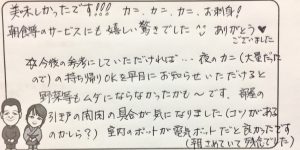 美味しかったです!!! カニ、カニ、カニ、お刺身!
朝食等のサービスにも嬉しい驚きでした^^ ありがとう♡
ございました
今後の参考にしていただければ… 夜のカニ(大量だった
ので)の持ち帰りOKを平日にお知らせいただけると
野菜等もムダにならなかったかも〜です。 部屋の
引き戸の開閉の具合が気になりました(コツがある
のかしら?) 室内のポットが電気ポットだと良かったです
(粗されていて残念でした)